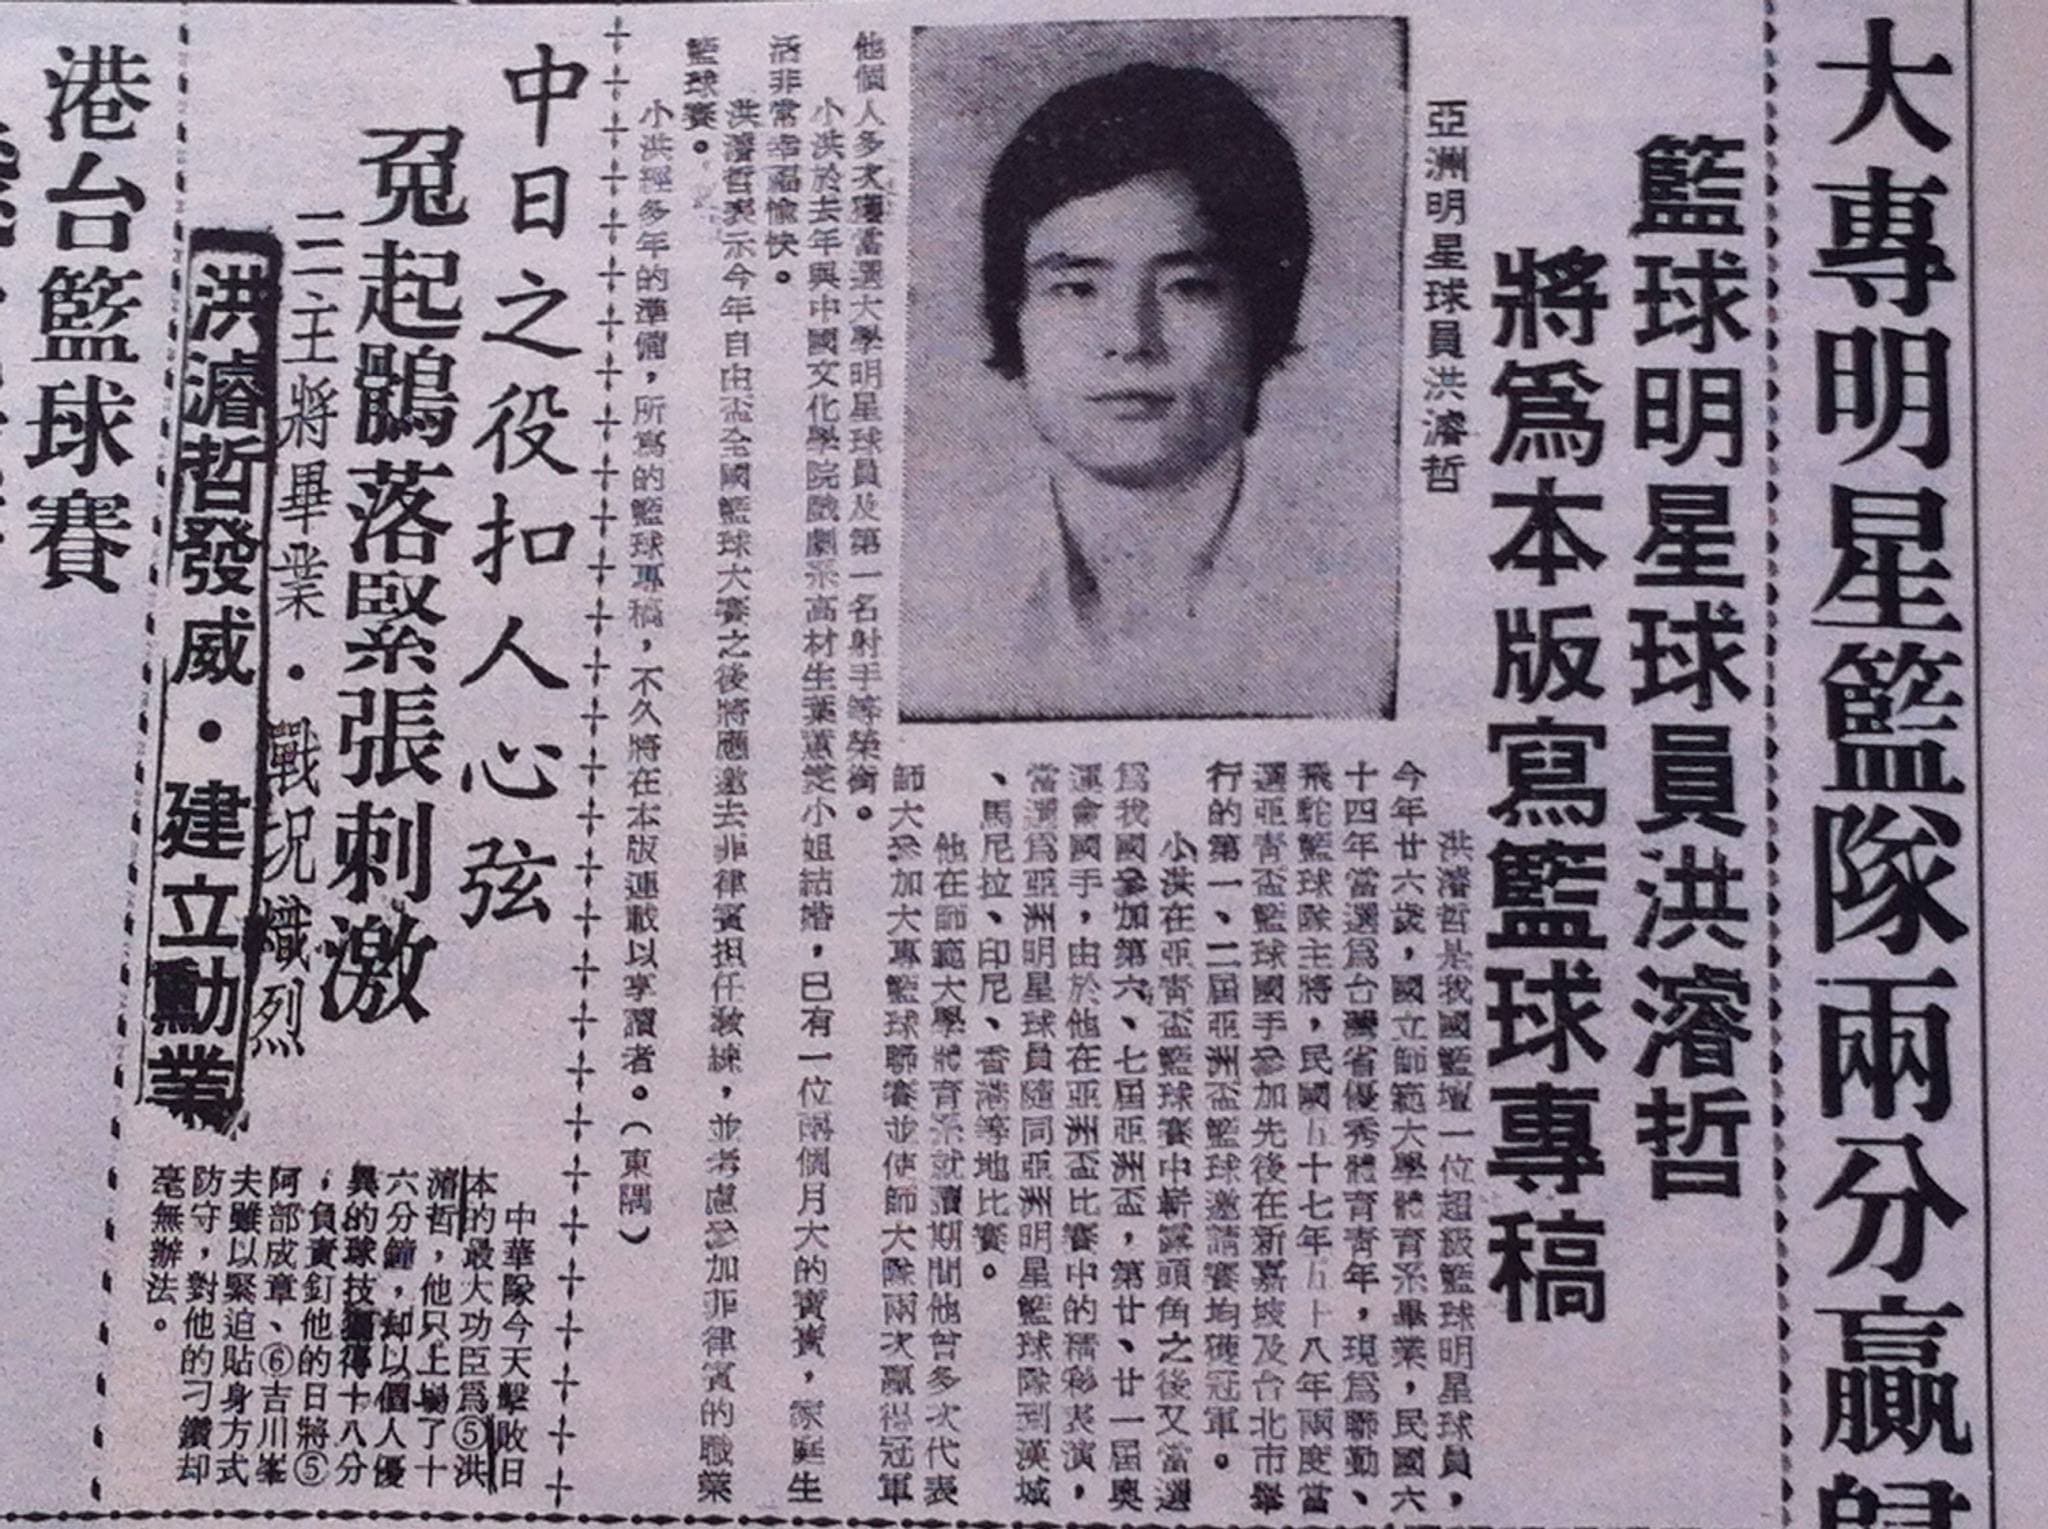 大專明星籃隊兩分贏歸
籃球明星球員洪濬哲
將為本版寫籃球專稿
亞洲明星球員洪濬哲
洪濬哲是我國籃壇一位超級籃球明星球員，
今年廿六歲，國立師範大學體育系畢業，民國六
十四年當選為台灣省優秀體育青年，現為聯勤、
飛駝籃球隊主將，民國五十七年五十八年兩度當
選亞青盃籃球國手參加先後在新嘉坡及台北市舉
行的第一、二屆亞洲盃籃球邀請賽均獲冠軍。
小洪在亞青盃籃球賽中嶄露頭角之後又當選
為我國參加第六、七屆亞洲盃，第廿、廿一屆奧
運會國手，由於他在亞洲盃比賽中的精彩表演，
當選為亞洲明星球員隨同亞洲明星籃球隊到漢城
、馬尼拉、印尼、香港等地比賽。
他在師範大學體育系就讀期間他曾多次代表
師大參加大專籃球聯賽並使師大隊兩次贏得冠軍
他個人多次獲當選大學明星球員及第一名射手等榮銜。
小洪於去年與中國文化學院戲劇系高材生葉蕙芠小姐結婚，已有一位兩個月大的寶寶，家庭生
活非常幸福愉快。
洪濬哲表示今年自由盃全國籃球大賽之後將應邀去菲律賓担任教練，並考慮參加菲律賓的職業
籃球賽。
小洪經多年的準備，所寫的籃球專稿，不久將在本版連載以享讀者。（東隅）
中日之役扣人心弦
兔起鶻落緊張刺激
三主將畢業·戰況熾烈
洪濬哲發威·建立勳業
中華隊今天擊敗日
本的最大功臣為⑤洪
濬哲，他只上場了十
六分鐘，却以個人優
異的球技獨得十八分
，負責釘他的日將⑤
阿部成章、⑥吉川峯
夫雖以緊迫貼身方式
防守，對他的刁鑽却
毫無辦法。
港台籃球賽